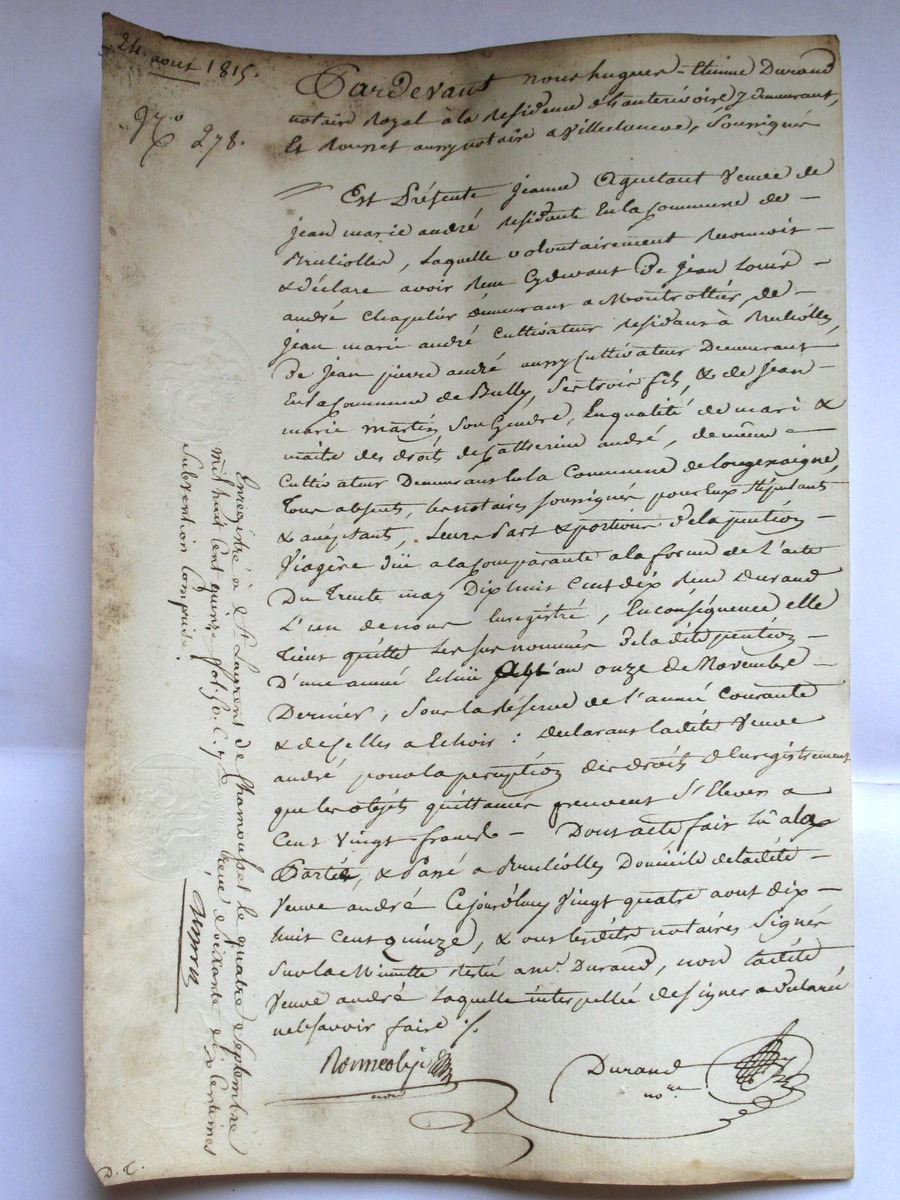 24 aout 1815.
No 278.
Pardevant nous hugues-Etienne Durand
notaire Royal à la Residence de Sauterivoire y demeurant,
Et aussy notaire a Villecheneve, Soussignés
Est Présente jeanne Aguetant Veuve de
jean marie andré Residante En la Commune de
Brulioller, Laquelle volontairement Reconnoit
& déclare avoir Reçu Cydevant De jean Louis
andré Chapelier demeurant a Montrottier, de
jean marie andré Cultivateur Residant à Bruliolles,
De jean pierre andré aussy Cultivateur Demeurant
En la Commune de Bully, Ses trois fils, & de jean
marie martin Son Gendre, En qualité de mari &
maitre des droits de Catherine andré, de même
Cultivateur Demeurant En la Commune de Longessaigne
Tous absents, les notaires soussignés pour Eux Stipulants
& acceptants, Leurs Part & portions De la pention
Viagère düe a la Comparante a la forme de L'acte
Du Trente may Dix huit Cent dix Reçu Durand
L'un de nous Enregistré, En Conséquence elle
Tient quitte Les sus nommés De la dite pention
D'une année Echüe au onze de Novembre
Dernier, Sous la Réserve de l'année Courante
& de Celles a Echoir : déclarant la dite Veuve
andré pour la perception des droits d'Enregistrement
que les objets quittancés peuvent S'Elever a
Cent vingt francs - Dont acte fait lû a la
Partie, & Passé a Bruliolles Domicile de la dite
Veuve andré Ce jourd'huy Vingt quatre aout dix
huit Cent quinze, & ont lesdits notaires Signé
Sur la Minutte Resté a me. Durand, non la dite
Veuve andré Laquelle interpellée de signer a declaré
ne le savoir faire
Durand
nore
Enregistré à St. Laurent de Chamousset le quatre Septembre
mil huit Cent quinze fol. 50. C. 7 Reçu Soixante dix Centimes
Subvention Comprise.
D. T.